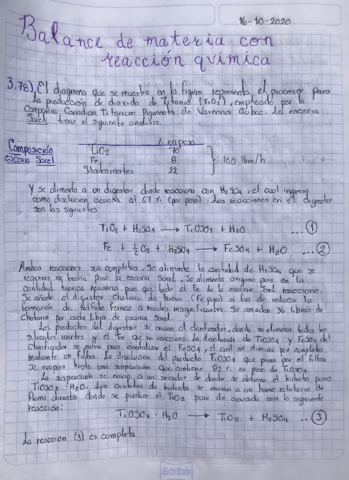 16-10-2020
Balance de materia con
reacción química
3.78). El diagrama que se muestra en la figura representa el proceso para
la producción de dioxido de Titanio (TiO2), empleado por la
Compañia Canadian Titanium Pigments de Varennes Quebec. La escoria
Sorel tiene el siguiente analisis
Composición
escoria Sorel
% en peso
TiO2 70
Fe 8
Silicatos inertes 22
100 lbm/h
Y se alimenta a un digestor donde reacciona con H2SO4, el cual ingresa
como disolución acuosa al 67 % (por peso). Las reacciones en el digestor
son las siguientes
TiO2 + H2SO4 → TiOSO4 + H2O ... 1
Fe + 1/2 O2 + H2SO4 → FeSO4 + H2O ... 2
Ambas reacciones son completas. Se alimenta la cantidad de H2SO4 que se
requiere en teoria para la escoria Sorel. Se alimenta oxigeno puro en la
cantidad teorica para que todo el Fe de la escoria Sorel reaccione.
Se añade al digestor chatarra de hierro (Fe puro) a fin de reducir la
formación de sulfato ferrico a niveles insignificantes. Se añaden 36 libras de
chatarra por cada libra de escoria Sorel
Los productos del digestor se envian al clarificador, donde se eliminan todos los
silicatos inertes y el Fe que no reacciono. La disolución de TiOSO4 y FeSO4 del
clarificador se enfria para cristalizar el FeSO4, el cual se elimina por completo
mediante un filtro. La disolución del producto TiOSO4 que pasa por el filtro
se evapora hasta una suspensión que contiene 82 % en peso de TiOSO4
La suspensión se envia a un secador de donde se obtiene el hidrato puro
TiOSO4 · H2O. Los cristales de hidrato se envian a un horno rotatorio de
flama directa donde se produce el TiO2 puro de acuerdo con la siguiente
reacción:
TiOSO4 · H2O → TiO2 + H2SO4 ... 3
La reacción (3) es completa
Scribe